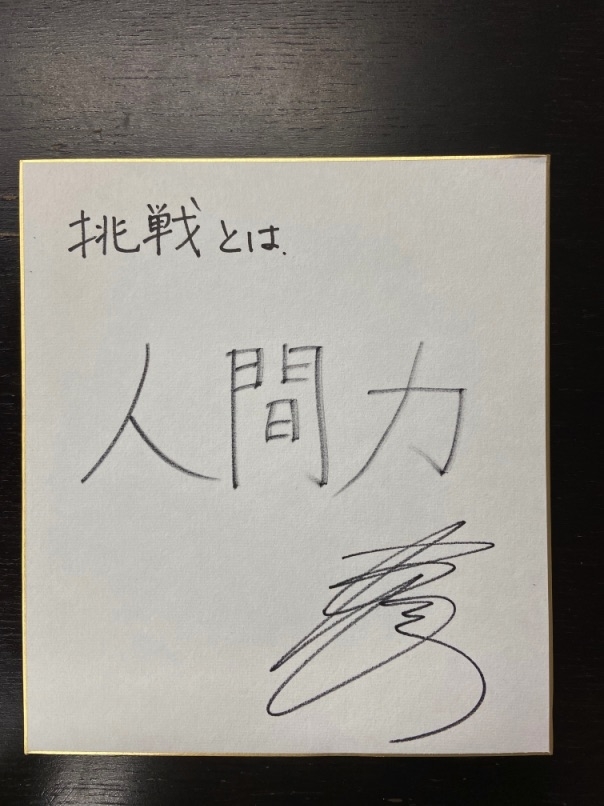 挑戦とは.
人間力